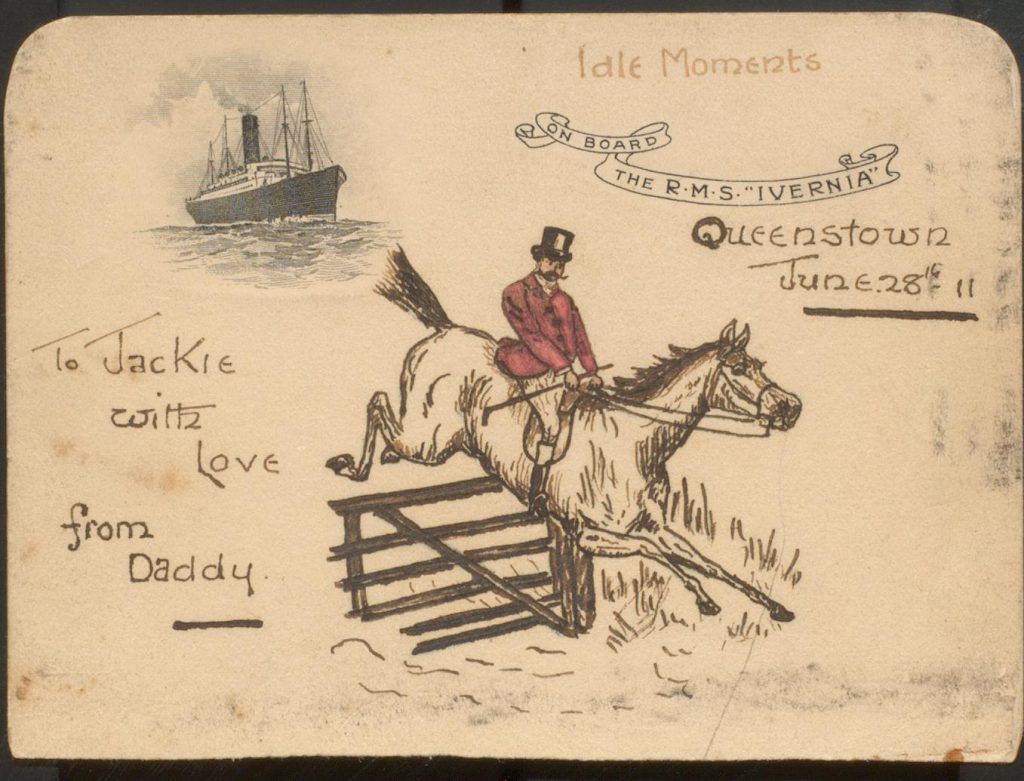 Idle Moments
ON BOARD
THE R·M·S·"IVERNIA"
Queenstown
June.28th 11
To Jackie
with
Love
from
Daddy.